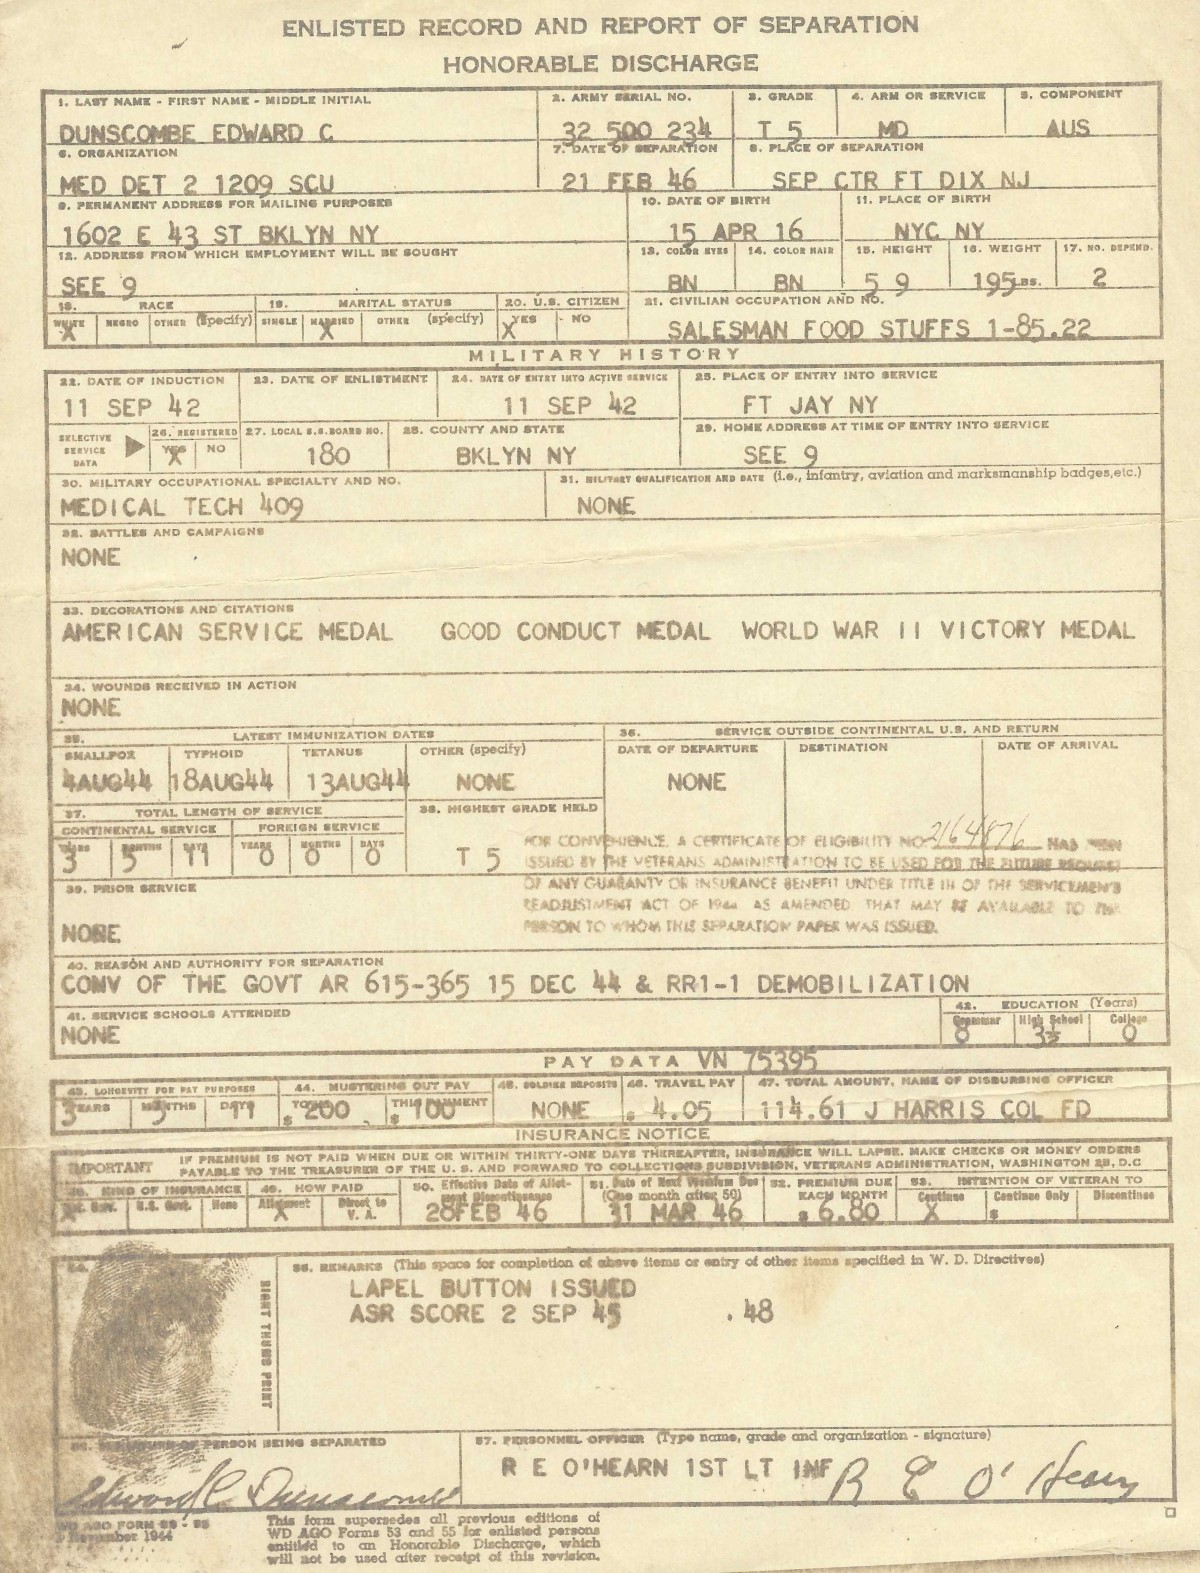 ENLISTED RECORD AND REPORT OF SEPARATION
HONORABLE DISCHARGE
1. LAST NAME - FIRST NAME - MIDDLE INITIAL 2. ARMY SERIAL NO. 3. GRADE 4. ARM OR SERVICE 5. COMPONENT
DUNSCOMBE EDWARD C 32 500 234 T 5 MD AUS
6. ORGANIZATION 7. DATE OF SEPARATION 8. PLACE OF SEPARATION
MED DET 2 1209 SCU 21 FEB 46 SEP CTR FT DIX NJ
9. PERMANENT ADDRESS FOR MAILING PURPOSES 10. DATE OF BIRTH 11. PLACE OF BIRTH
1602 E 43 ST BKLYN NY 15 APR 16 NYC NY
12. ADDRESS FROM WHICH EMPLOYMENT WILL BE SOUGHT 13. COLOR EYES 14. COLOR HAIR 15. HEIGHT 16. WEIGHT 17. NO. DEPEND.
SEE 9 BN BN 5 9 195 LBS. 2
18. RACE 19. MARITAL STATUS 20. U.S. CITIZEN 21. CIVILIAN OCCUPATION AND NO.
WHITE NEGRO OTHER (specify) SINGLE MARRIED OTHER (specify) YES NO
X X X SALESMAN FOOD STUFFS 1-85.22
MILITARY HISTORY
22. DATE OF INDUCTION 23. DATE OF ENLISTMENT 24. DATE OF ENTRY INTO ACTIVE SERVICE 25. PLACE OF ENTRY INTO SERVICE
11 SEP 42 11 SEP 42 FT JAY NY
SELECTIVE SERVICE DATA 26. REGISTERED 27. LOCAL S.S. BOARD NO. 28. COUNTY AND STATE 29. HOME ADDRESS AT TIME OF ENTRY INTO SERVICE
YES NO
X 180 BKLYN NY SEE 9
30. MILITARY OCCUPATIONAL SPECIALTY AND NO. 31. MILITARY QUALIFICATION AND DATE (i.e., infantry, aviation and marksmanship badges, etc.)
MEDICAL TECH 409 NONE
32. BATTLES AND CAMPAIGNS
NONE
33. DECORATIONS AND CITATIONS
AMERICAN SERVICE MEDAL GOOD CONDUCT MEDAL WORLD WAR II VICTORY MEDAL
34. WOUNDS RECEIVED IN ACTION
NONE
35. LATEST IMMUNIZATION DATES 36. SERVICE OUTSIDE CONTINENTAL U.S. AND RETURN
SMALLPOX TYPHOID TETANUS OTHER (specify) DATE OF DEPARTURE DESTINATION DATE OF ARRIVAL
4AUG44 18AUG44 13AUG44 NONE NONE
37. TOTAL LENGTH OF SERVICE 38. HIGHEST GRADE HELD
CONTINENTAL SERVICE FOREIGN SERVICE
YEARS MONTHS DAYS YEARS MONTHS DAYS
3 5 11 0 0 0 T 5
FOR CONVENIENCE, A CERTIFICATE OF ELIGIBILITY NO 2164876 HAS BEEN
ISSUED BY THE VETERANS ADMINISTRATION TO BE USED FOR THE FUTURE REQUEST
OF ANY GUARANTY OR INSURANCE BENEFIT UNDER TITLE III OF THE SERVICEMEN'S
READJUSTMENT ACT OF 1944 AS AMENDED, THAT MAY BE AVAILABLE TO THE
PERSON TO WHOM THIS SEPARATION PAPER WAS ISSUED.
39. PRIOR SERVICE
NONE
40. REASON AND AUTHORITY FOR SEPARATION
CONV OF THE GOVT AR 615-365 15 DEC 44 & RR1-1 DEMOBILIZATION
41. SERVICE SCHOOLS ATTENDED 42. EDUCATION (Years)
NONE Grammar High School College
8 3½ 0
PAY DATA VN 75395
43. LONGEVITY FOR PAY PURPOSES 44. MUSTERING OUT PAY 45. SOLDIER DEPOSITS 46. TRAVEL PAY 47. TOTAL AMOUNT, NAME OF DISBURSING OFFICER
YEARS MONTHS DAYS TOTAL THIS PAYMENT
3 5 11 $ 200 $ 100 NONE $ 4.05 114.61 J HARRIS COL FD
INSURANCE NOTICE
IMPORTANT IF PREMIUM IS NOT PAID WHEN DUE OR WITHIN THIRTY-ONE DAYS THEREAFTER, INSURANCE WILL LAPSE. MAKE CHECKS OR MONEY ORDERS
PAYABLE TO THE TREASURER OF THE U. S. AND FORWARD TO COLLECTIONS SUBDIVISION, VETERANS ADMINISTRATION, WASHINGTON 25, D.C
48. KIND OF INSURANCE 49. HOW PAID 50. Effective Date of Allotment Discontinuance 51. Date of Next Premium Due (One month after 50) 52. PREMIUM DUE EACH MONTH 53. INTENTION OF VETERAN TO
Nat. Serv. U.S. Govt. None Allotment Direct to V. A. Continue Continue Only Discontinue
X X 28FEB 46 31 MAR 46 $ 6.80 X $
54. RIGHT THUMB PRINT
55. REMARKS (This space for completion of above items or entry of other items specified in W. D. Directives)
LAPEL BUTTON ISSUED
ASR SCORE 2 SEP 45 .48
56. SIGNATURE OF PERSON BEING SEPARATED 57. PERSONNEL OFFICER (Type name, grade and organization - signature)
Edward C. Dunscombe R E O'HEARN 1ST LT INF R E O'Hearn
WD AGO FORM 53 - 55
1 November 1944
This form supersedes all previous editions of
WD AGO Forms 53 and 55 for enlisted persons
entitled to an Honorable Discharge, which
will not be used after receipt of this revision.